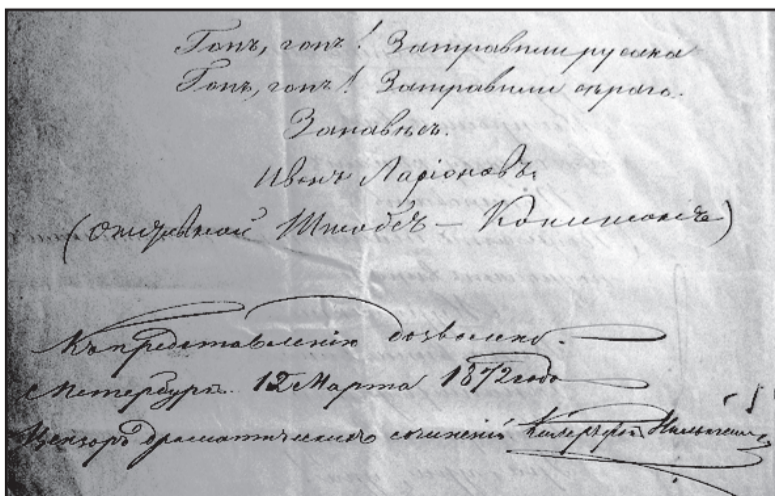 Гопъ, гопъ! Затравили русака
Гопъ, гопъ! Затравили сѣраго.
Занавѣсъ.
Иванъ Ларіоновъ.
(отставной Штабсъ – Капитанъ)
Къ представленію дозволено.
С.Петербургъ. 12 Марта 1872 года
Цензоръ драматическихъ сочиненій